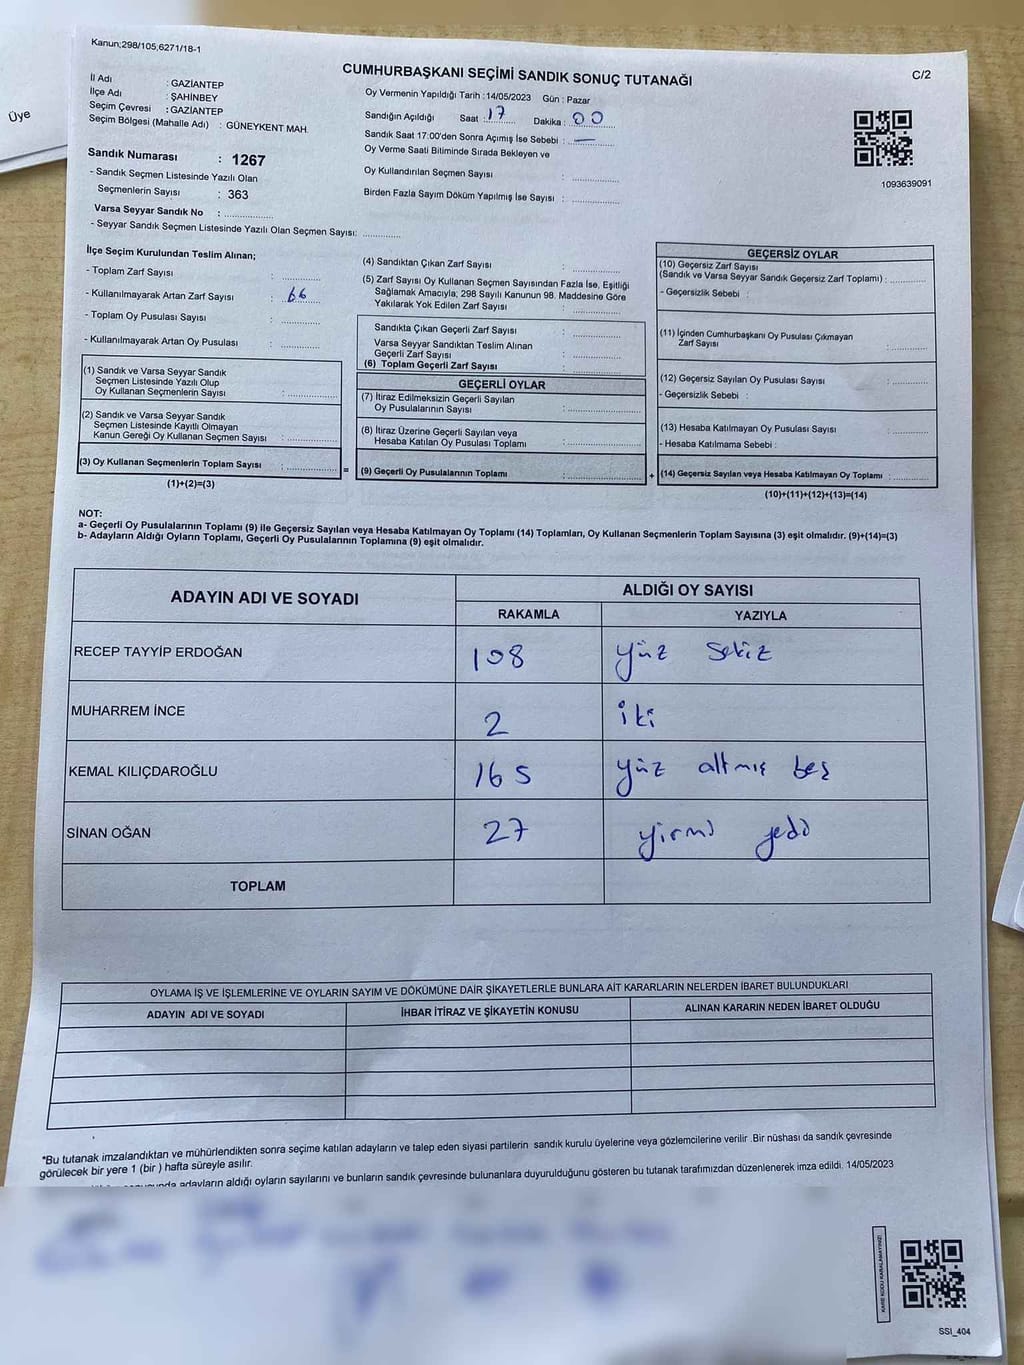 Üye
Kanun;298/105,6271/18-1
CUMHURBAŞKANI SEÇİMİ SANDIK SONUÇ TUTANAĞI
C/2
İl Adı : GAZİANTEP
İlçe Adı : ŞAHİNBEY
Seçim Çevresi : GAZİANTEP
Seçim Bölgesi (Mahalle Adı) : GÜNEYKENT MAH.
Sandık Numarası : 1267
- Sandık Seçmen Listesinde Yazılı Olan
Seçmenlerin Sayısı : 363
Varsa Seyyar Sandık No : ..............
- Seyyar Sandık Seçmen Listesinde Yazılı Olan Seçmen Sayısı: ............
Oy Vermenin Yapıldığı Tarih : 14/05/2023 Gün : Pazar
Sandığın Açıldığı Saat : 17 Dakika : 00
Sandık Saat 17:00'den Sonra Açımış İse Sebebi : —
Oy Verme Saati Bitiminde Sırada Bekleyen ve
Oy Kullandırılan Seçmen Sayısı : ..............
Birden Fazla Sayım Döküm Yapılmış İse Sayısı : ..............
1093639091
İlçe Seçim Kurulundan Teslim Alınan;
- Toplam Zarf Sayısı : ............
- Kullanılmayarak Artan Zarf Sayısı : 66
- Toplam Oy Pusulası Sayısı : ............
- Kullanılmayarak Artan Oy Pusulası : ............
(1) Sandık ve Varsa Seyyar Sandık
Seçmen Listesinde Yazılı Olup
Oy Kullanan Seçmenlerin Sayısı : ..............
(2) Sandık ve Varsa Seyyar Sandık
Seçmen Listesinde Kayıtlı Olmayan
Kanun Gereği Oy Kullanan Seçmen Sayısı : ..............
(3) Oy Kullanan Seçmenlerin Toplam Sayısı : ..............
(1)+(2)=(3)
=
(4) Sandıktan Çıkan Zarf Sayısı : ..............
(5) Zarf Sayısı Oy Kullanan Seçmen Sayısından Fazla İse, Eşitliği
Sağlamak Amacıyla; 298 Sayılı Kanunun 98. Maddesine Göre
Yakılarak Yok Edilen Zarf Sayısı : ..............
Sandıkta Çıkan Geçerli Zarf Sayısı : ..............
Varsa Seyyar Sandıktan Teslim Alınan
Geçerli Zarf Sayısı : ..............
(6) Toplam Geçerli Zarf Sayısı : ..............
GEÇERLİ OYLAR
(7) İtiraz Edilmeksizin Geçerli Sayılan
Oy Pusulalarının Sayısı : ..............
(8) İtiraz Üzerine Geçerli Sayılan veya
Hesaba Katılan Oy Pusulası Toplamı : ..............
(9) Geçerli Oy Pusulalarının Toplamı : ..............
+
GEÇERSİZ OYLAR
(10) Geçersiz Zarf Sayısı
(Sandık ve Varsa Seyyar Sandık Geçersiz Zarf Toplamı) : ............
- Geçersizlik Sebebi :
(11) İçinden Cumhurbaşkanı Oy Pusulası Çıkmayan
Zarf Sayısı : ............
(12) Geçersiz Sayılan Oy Pusulası Sayısı : ............
- Geçersizlik Sebebi :
(13) Hesaba Katılmayan Oy Pusulası Sayısı : ............
- Hesaba Katılmama Sebebi :
(14) Geçersiz Sayılan veya Hesaba Katılmayan Oy Toplamı : ............
(10)+(11)+(12)+(13)=(14)
NOT:
a- Geçerli Oy Pusulalarının Toplamı (9) ile Geçersiz Sayılan veya Hesaba Katılmayan Oy Toplamı (14) Toplamları, Oy Kullanan Seçmenlerin Toplam Sayısına (3) eşit olmalıdır. (9)+(14)=(3)
b- Adayların Aldığı Oyların Toplamı, Geçerli Oy Pusulalarının Toplamına (9) eşit olmalıdır.
ADAYIN ADI VE SOYADI
ALDIĞI OY SAYISI
RAKAMLA YAZIYLA
RECEP TAYYİP ERDOĞAN 108 yüz sekiz
MUHARREM İNCE 2 iki
KEMAL KILIÇDAROĞLU 165 yüz altmış beş
SİNAN OĞAN 27 yirmi yedi
TOPLAM
OYLAMA İŞ VE İŞLEMLERİNE VE OYLARIN SAYIM VE DÖKÜMÜNE DAİR ŞİKAYETLERLE BUNLARA AİT KARARLARIN NELERDEN İBARET BULUNDUKLARI
ADAYIN ADI VE SOYADI İHBAR İTİRAZ VE ŞİKAYETİN KONUSU ALINAN KARARIN NEDEN İBARET OLDUĞU
*Bu tutanak imzalandıktan ve mühürlendikten sonra seçime katılan adayların ve talep eden siyasi partilerin sandık kurulu üyelerine veya gözlemcilerine verilir .Bir nüshası da sandık çevresinde
görülecek bir yere 1 (bir ) hafta süreyle asılır.
adayların aldığı oyların sayılarını ve bunların sandık çevresinde bulunanlara duyurulduğunu gösteren bu tutanak tarafımızdan düzenlenerek imza edildi. 14/05/2023
KARE KODU KARALAMAYINIZ!
SSI_404